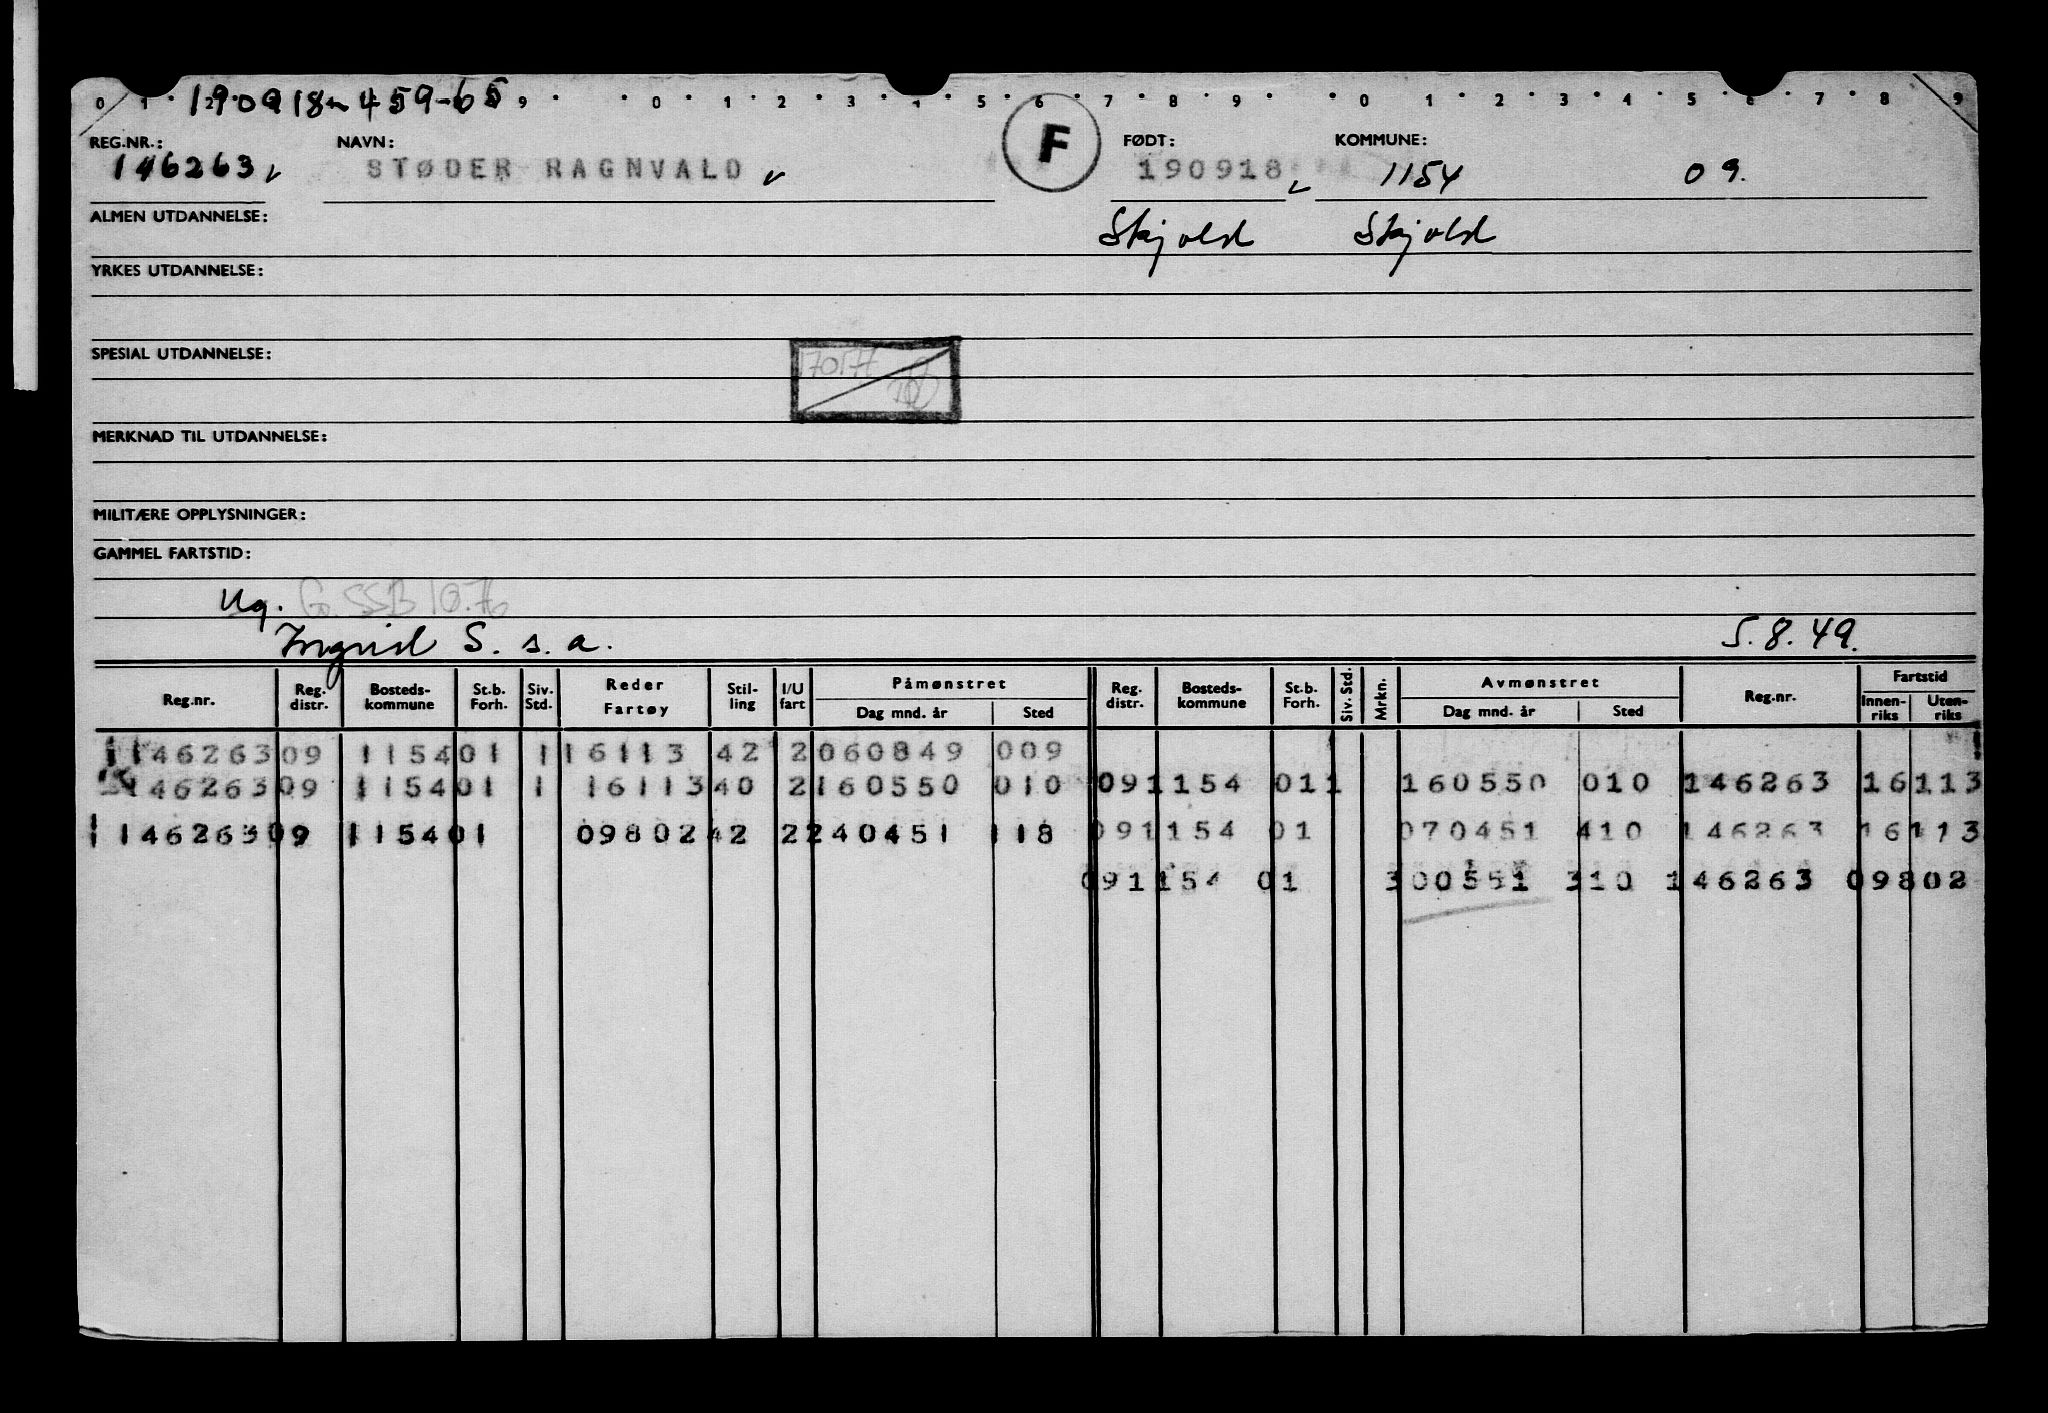 0 1 · 2 · 190918-459-65 9 · · 0 · 1 · 2 · 3 · 4 · 5 · 6 · 7 · 8 · 9 · · 0 · 1 · 2 · 3 · 4 · 5 · 6 · 7 · 8 · 9
REG.NR.: NAVN: F FØDT: KOMMUNE:
146263 STØDER RAGNVALD 190918 1154 09.
ALMEN UTDANNELSE: Skjold Skjold
YRKES UTDANNELSE:
SPESIAL UTDANNELSE:
MERKNAD TIL UTDANNELSE:
MILITÆRE OPPLYSNINGER:
GAMMEL FARTSTID:
Ug. G. SSB 10.76
Ingrid S. s. a. 5.8.49.
Reg.nr. Reg. distr. Bosteds-kommune St.b. Forh. Siv. Std. Reder Fartøy Stil-ling I/U fart Påmønstret Dag mnd. år Sted Reg. distr. Bosteds-kommune St.b. Forh. Siv. Std. Mrkn. Avmønstret Dag mnd. år Sted Reg.nr. Fartstid Innen-riks Uten-riks
146263 09 1154 01 1 16113 42 2 060849 009
146263 09 1154 01 1 16113 40 2 160550 010 09 1154 01 1 160550 010 146263 16113
146263 09 1154 01 09802 42 2 240451 118 09 1154 01 070451 410 146263 16113
09 1154 01 300551 310 146263 09802